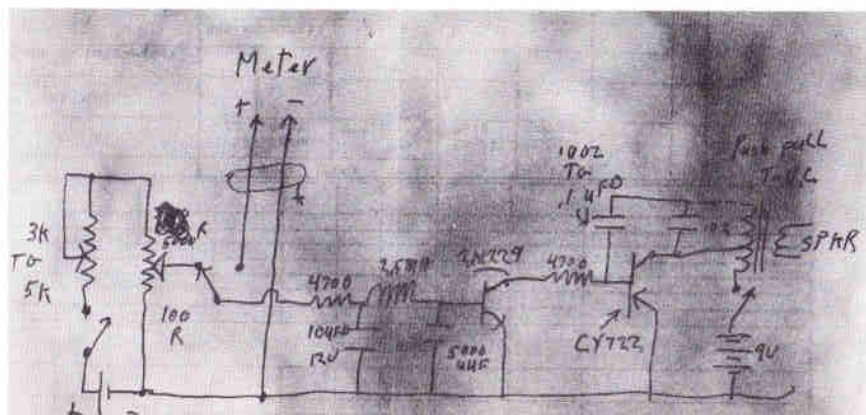 Meter
+ -
3K
TO
5K
5000 R
100
R
4700
2.5MH
10UFD
12V
5000
UUF
2N229
4700
.002
TO
.1 UFD
CK722
Push pull
SPKR
9V
+ -